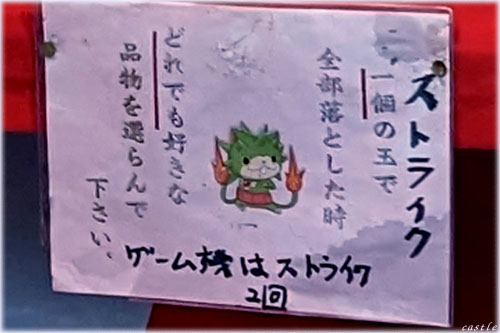 ストライク
一個の玉で
全部落とした時
どれでも好きな
品物を選らんで
下さい。
ゲーム機はストライク
2回
castle